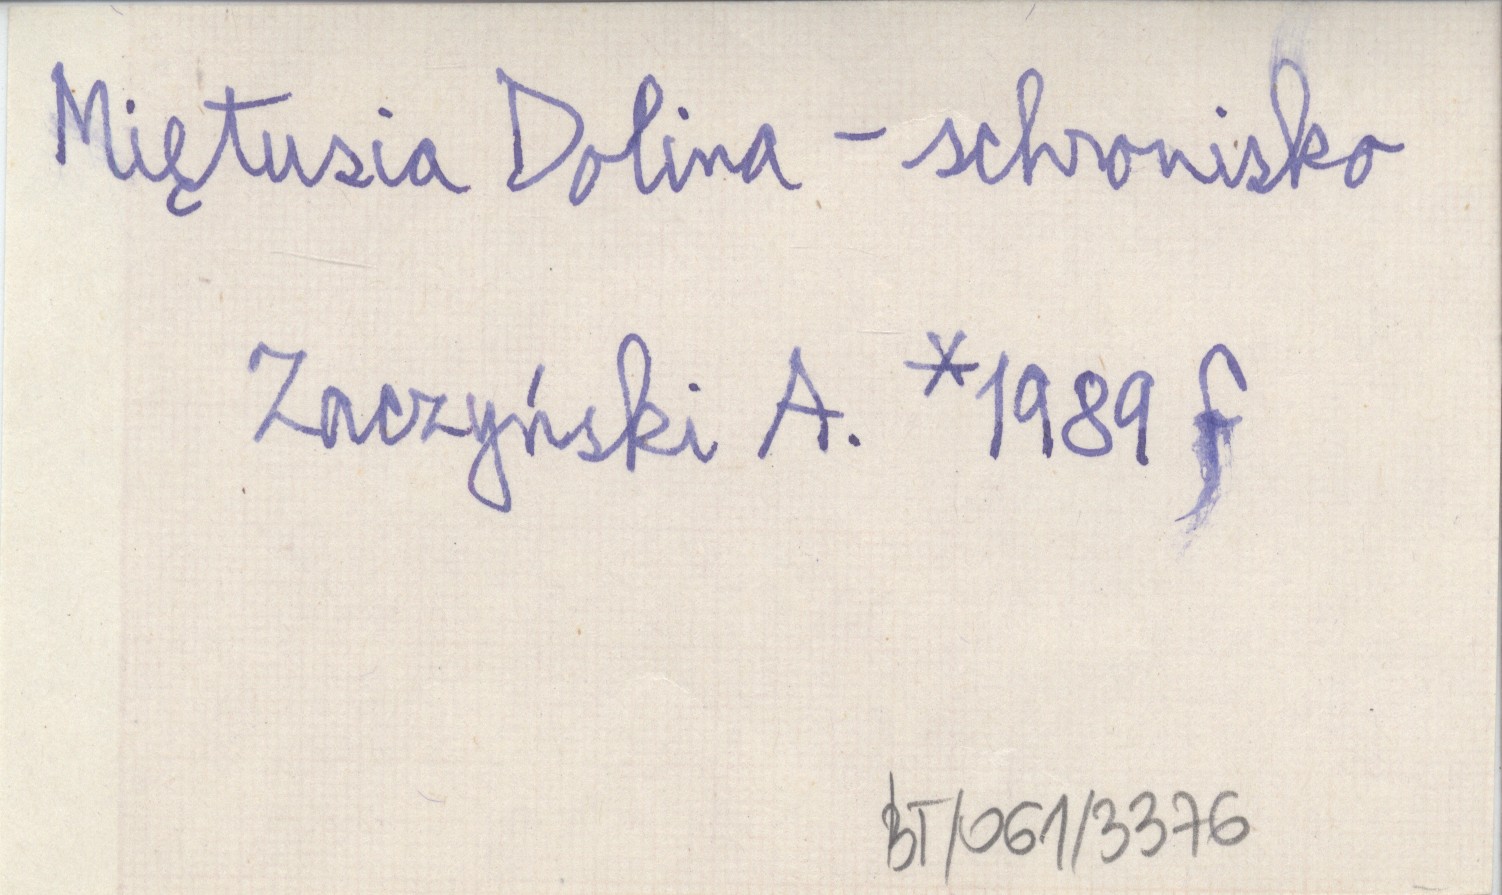 Miętusia Dolina – schronisko
Zaczyński A. *1989 f
BT/061/3376